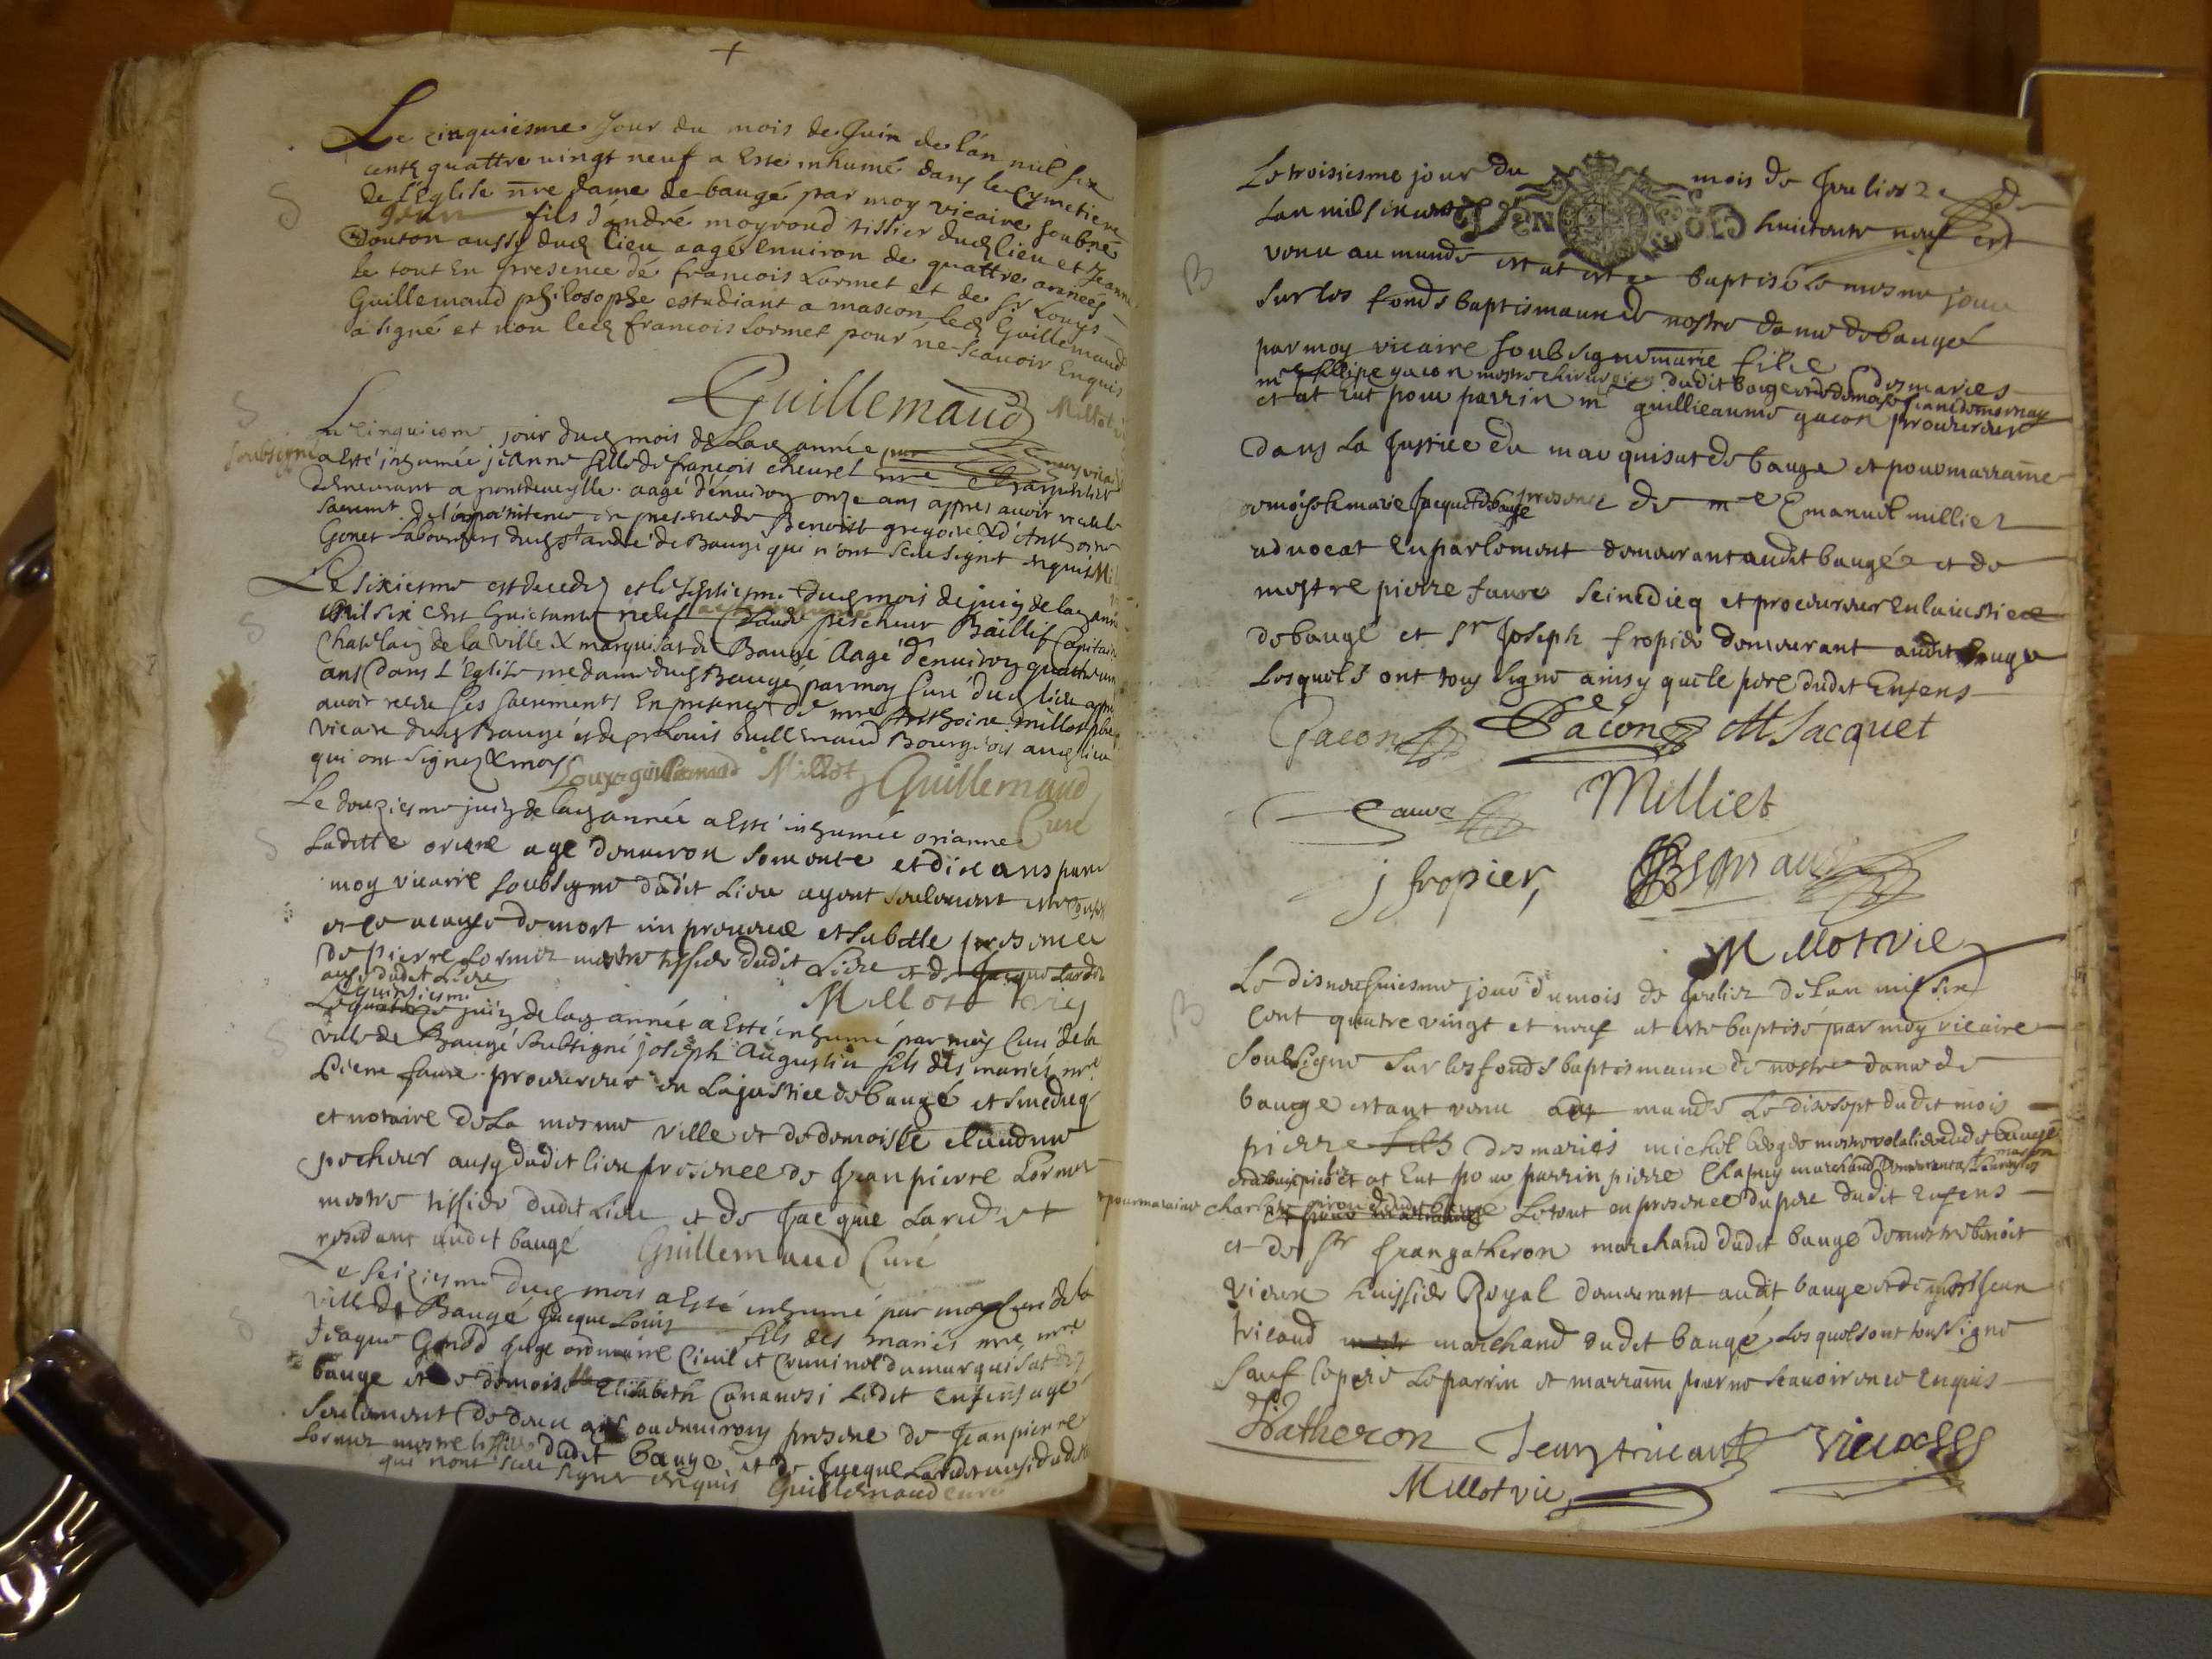 Le cinquiesme Jour du mois de Juin de l'an mil six
centz quattre vingt neuf a Esté inhumé dans le Cymetiere
de l'Eglise nre dame de baugé par moy vicaire soubné
S
Jean fils d'andré moyroud tissier dud lieu et Jeanne
Douton aussy dud lieu aagé enuiron de quattre années
le tout En presence de francois Lormet et de Sr Louys
Guillemaud philosophe estudiant a mascon led Guillemaud
a signé et non led francois Lormet pour ne scauoir Enquis
Guillemaud Millot
S
Le cinquiesme jour dud mois de lad année par moy vicaire
soubsigné a Esté inhumée jeanne fille de françois cheurel mre charpentier
demeurant a pontdeueylle aagé d'enuiron onze ans appres auoir receu le
sacremt de la poenitence en presence de Benoist gregoire & d'Anthoine
Gonet Laboureurs dud st andré de Baugé qui n'ont sceu signer enquis
S
Le sixiesme est decedez et le septiesme dud mois de juin de lad année
mil six cent huictante neuf a esté inhumé Claude pescheur Baillif Capitaine
Chastelain de la ville & marquisat de Baugé aagé d'enuiron quatre vingt
ans Dans L'Eglise nre dame dud Baugé par moy Curé dud lieu appres
auoir receu ses sacrements En presence de mre Anthoine millot pbre
vicaire dud Baugé et de sr Louis Guillemaud Bourgeois aud lieu
qui ont signez & moy Louys guillemaud Millot Guillemaud
Curé
S
Le douziesme juin de lad année a Esté inhumée orianne
Laditte oriane agé denuiron soisente et dix ans par
moy vicaire soubsigne dudit Lieu ayent seulement
et ce a cause de mort impreueue et subitte presence
de pierre Lormet mestre tissier dudit Lieu et de Jaque Lardet
ausy dudit Lieu
Millot vic
S
Le quinziesme juin de lad année a Esté inhumé par moy Curé de la
ville de Baugé soubsigné joseph Augustin fils des mariés mre
Pierre faure procureur en la justice de baugé et sinedicq
et notaire de La mesme ville et de demoiselle claudine
pecheur ausy dudit lieu presence de Jean pierre Lormet
mestre tissier dudit Lieu et de Jacque Lardet
residant audit baugé Guillemaud Curé
S
Le seiziesme dud mois a Esté inhumé par moy Curé de la
ville de Baugé Jacque Louis fils des mariés mre
Jcaque juge ordinaire Ciuil et Criminel du marquisat de
bauge et de demoiselle Elisabeth Canauesi Ledit enfens agé
seulement de deux ans ou enuiron presence de Jean pierre
Lormet mestre tissier dudit bauge et de Jacque Lardet ausi dudit
qui n'ont sceu signer enquis Guillemaud curé
Le troisiesme jour du mois de Jeulier
GEN
Lan mil six cent huictente neuf est
B
venu au munde et at este baptisé le mesme jour
sur les fonds baptismaux de nostre dame de baugé
par moy vicaire soubsigne marie fille des maries
mre phelipe gacon mestre chirurgien dudit bauge et de
et at Eut pour parrin mre guillieaume gacon procureur
dans La Justice du marquisat de bauge et pour marraine
demoiselle marie Jacquet de bauge presence de mre Emanuel millier
aduocat en parlement demeurant audit baugé et de
mestre pierre faure seinedicq et procureur en la iustice
de baugé et sr Joseph fropier demeurant audit bauge
Lesquels ont tous signé ainsy que le pere dudit Enfens
Gacon Gacon M Jacquet
Faure Milliet
j fropier,
Millot vic
B
Le disneufuiesme jour du mois de Jeulier de Lan mil six
cent quatre vingt et neuf at este baptisé par moy vicaire
soubsigne sur les fonds baptismaux de nostre dame de
bauge estant venu au munde Le disesept dudit mois
pierre fils des mariés michel mestre dudit bauge
et at Eut pour parrin pierre Chapuy marchand
et pour maraine Le tout en presence du pere dudit enfens
et de sr Jean gatheron marchand dudit bauge de mestre benoit
vieux huissier Royal demeurant audit bauge et de Jean
tricaud marchand dudit baugé Les quels ont tous signe
sauf le pere Le parrin et marraine pour ne scauoir enquis
Gatheron Jean tricaud vieux
Millot vic